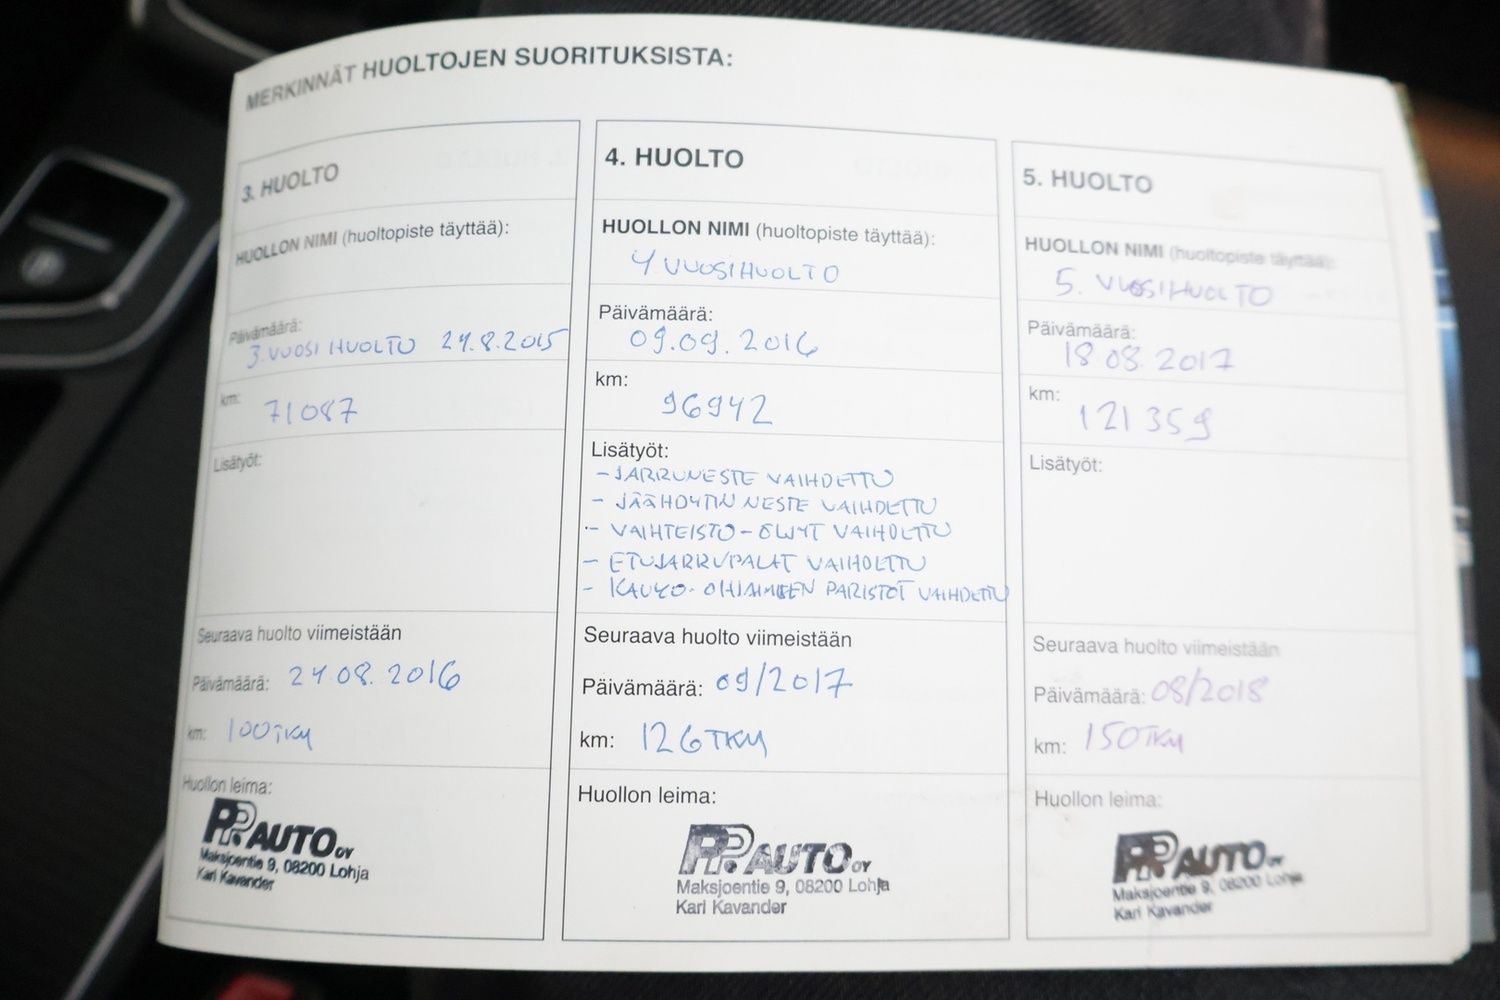 MERKINNÄT HUOLTOJEN SUORITUKSISTA:
3. HUOLTO
HUOLLON NIMI (huoltopiste täyttää):
Päivämäärä:
3. VUOSI HUOLTO 24.8.2015
km:
71087
Lisätyöt:
Seuraava huolto viimeistään
Päivämäärä: 24.08.2016
km: 100TKM
Huollon leima:
PP.AUTO OY
Maksjoentie 9, 08200 Lohja
Kari Kavander
4. HUOLTO
HUOLLON NIMI (huoltopiste täyttää):
4 VUOSIHUOLTO
Päivämäärä:
09.09.2016
km:
96942
Lisätyöt:
- JARRUNESTE VAIHDETTU
- JÄÄHDYTIN NESTE VAIHDETTU
- VAIHTEISTO-ÖLJYT VAIHDETTU
- ETUJARRUPALAT VAIHDETTU
- KAUKO-OHJAIMEEN PARISTOT VAIHDETTU
Seuraava huolto viimeistään
Päivämäärä: 09/2017
km: 126TKM
Huollon leima:
PP.AUTO OY
Maksjoentie 9, 08200 Lohja
Kari Kavander
5. HUOLTO
HUOLLON NIMI (huoltopiste täyttää):
5. VUOSIHUOLTO
Päivämäärä:
18 08. 2017
km:
121 359
Lisätyöt:
Seuraava huolto viimeistään
Päivämäärä: 08/2018
km: 150TKM
Huollon leima:
PP.AUTO OY
Maksjoentie 9, 08200 Lohja
Kari Kavander